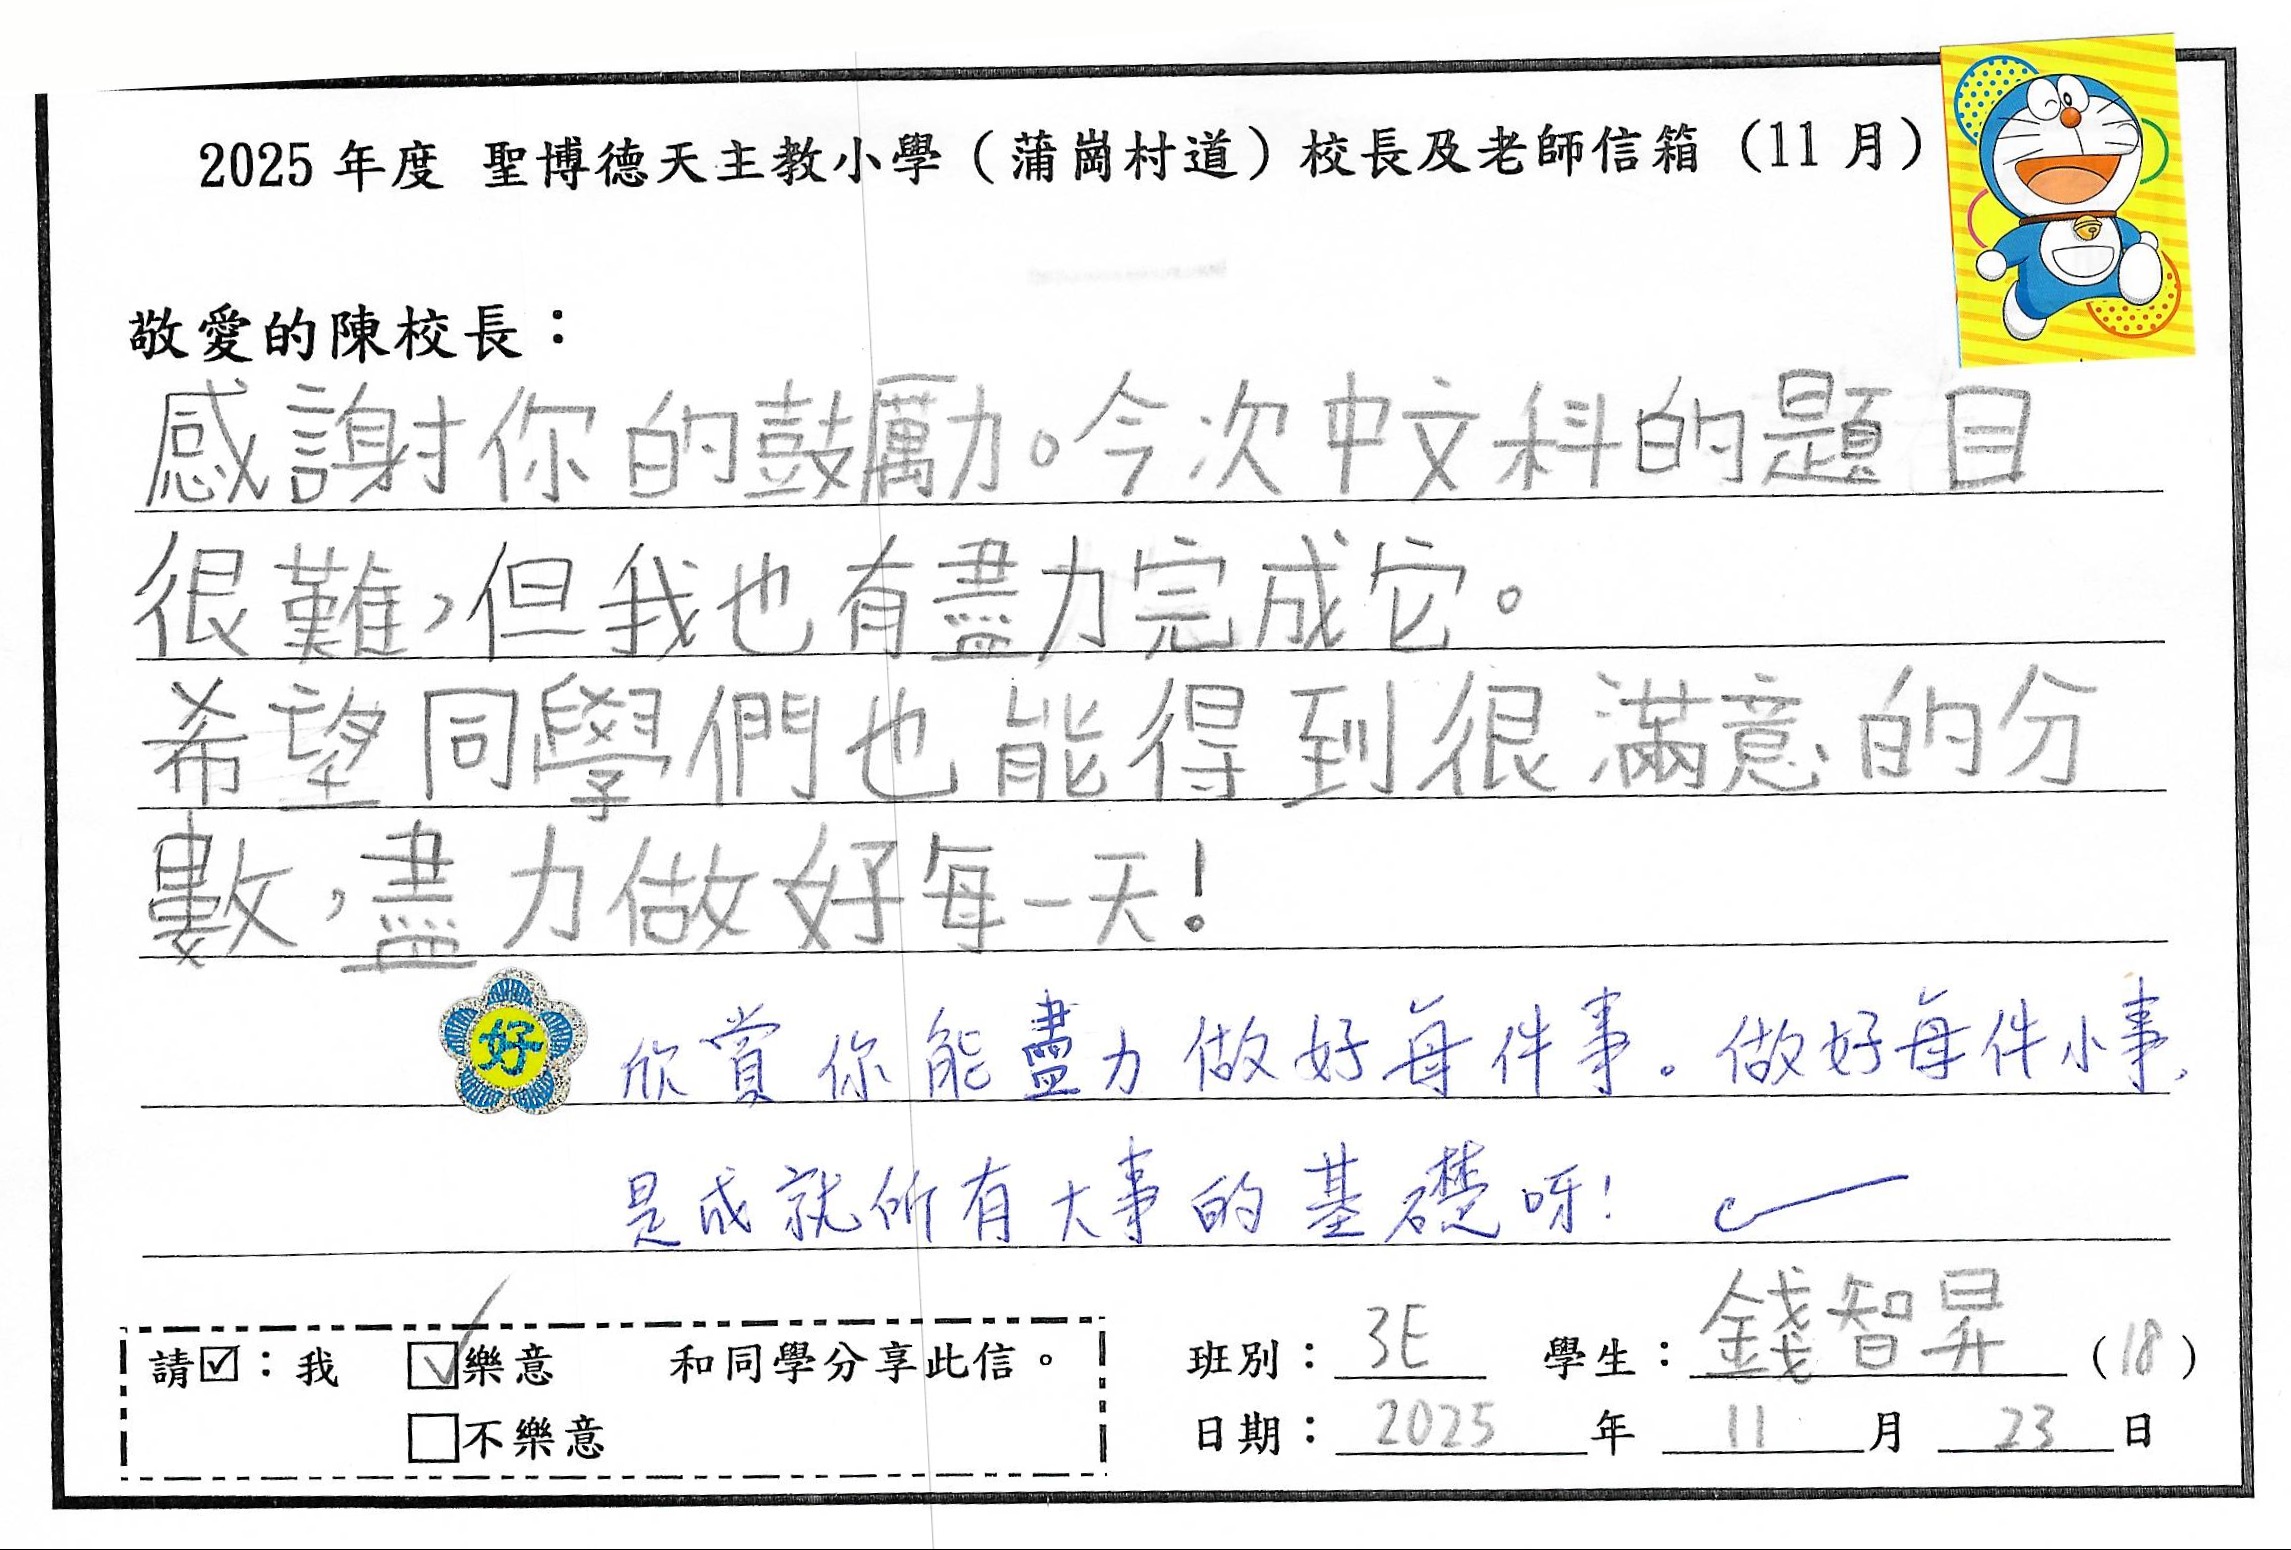 2025 年度 聖博德天主教小學（蒲崗村道）校長及老師信箱（11 月）
敬愛的陳校長：
感謝你的鼓勵。今次中文科的題目
很難，但我也有盡力完成它。
希望同學們也能得到很滿意的分
數，盡力做好每一天！
好
欣賞你能盡力做好每件事。做好每件小事，
是成就所有大事的基礎呀！
請☑：我 ☑樂意 和同學分享此信。
□不樂意
班別：3E 學生：錢智昇（18）
日期：2025 年 11 月 23 日